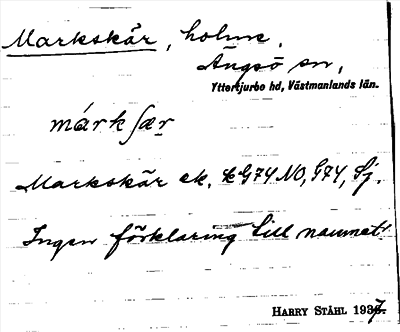 Markskär, holme,
Ängsö sn,
Yttertjurbo hd, Västmanlands län.
márkʃær
Markskär ek. G74 NO, G74, Sj.
Ingen förklaring till namnet!
HARRY STÅHL 1937.